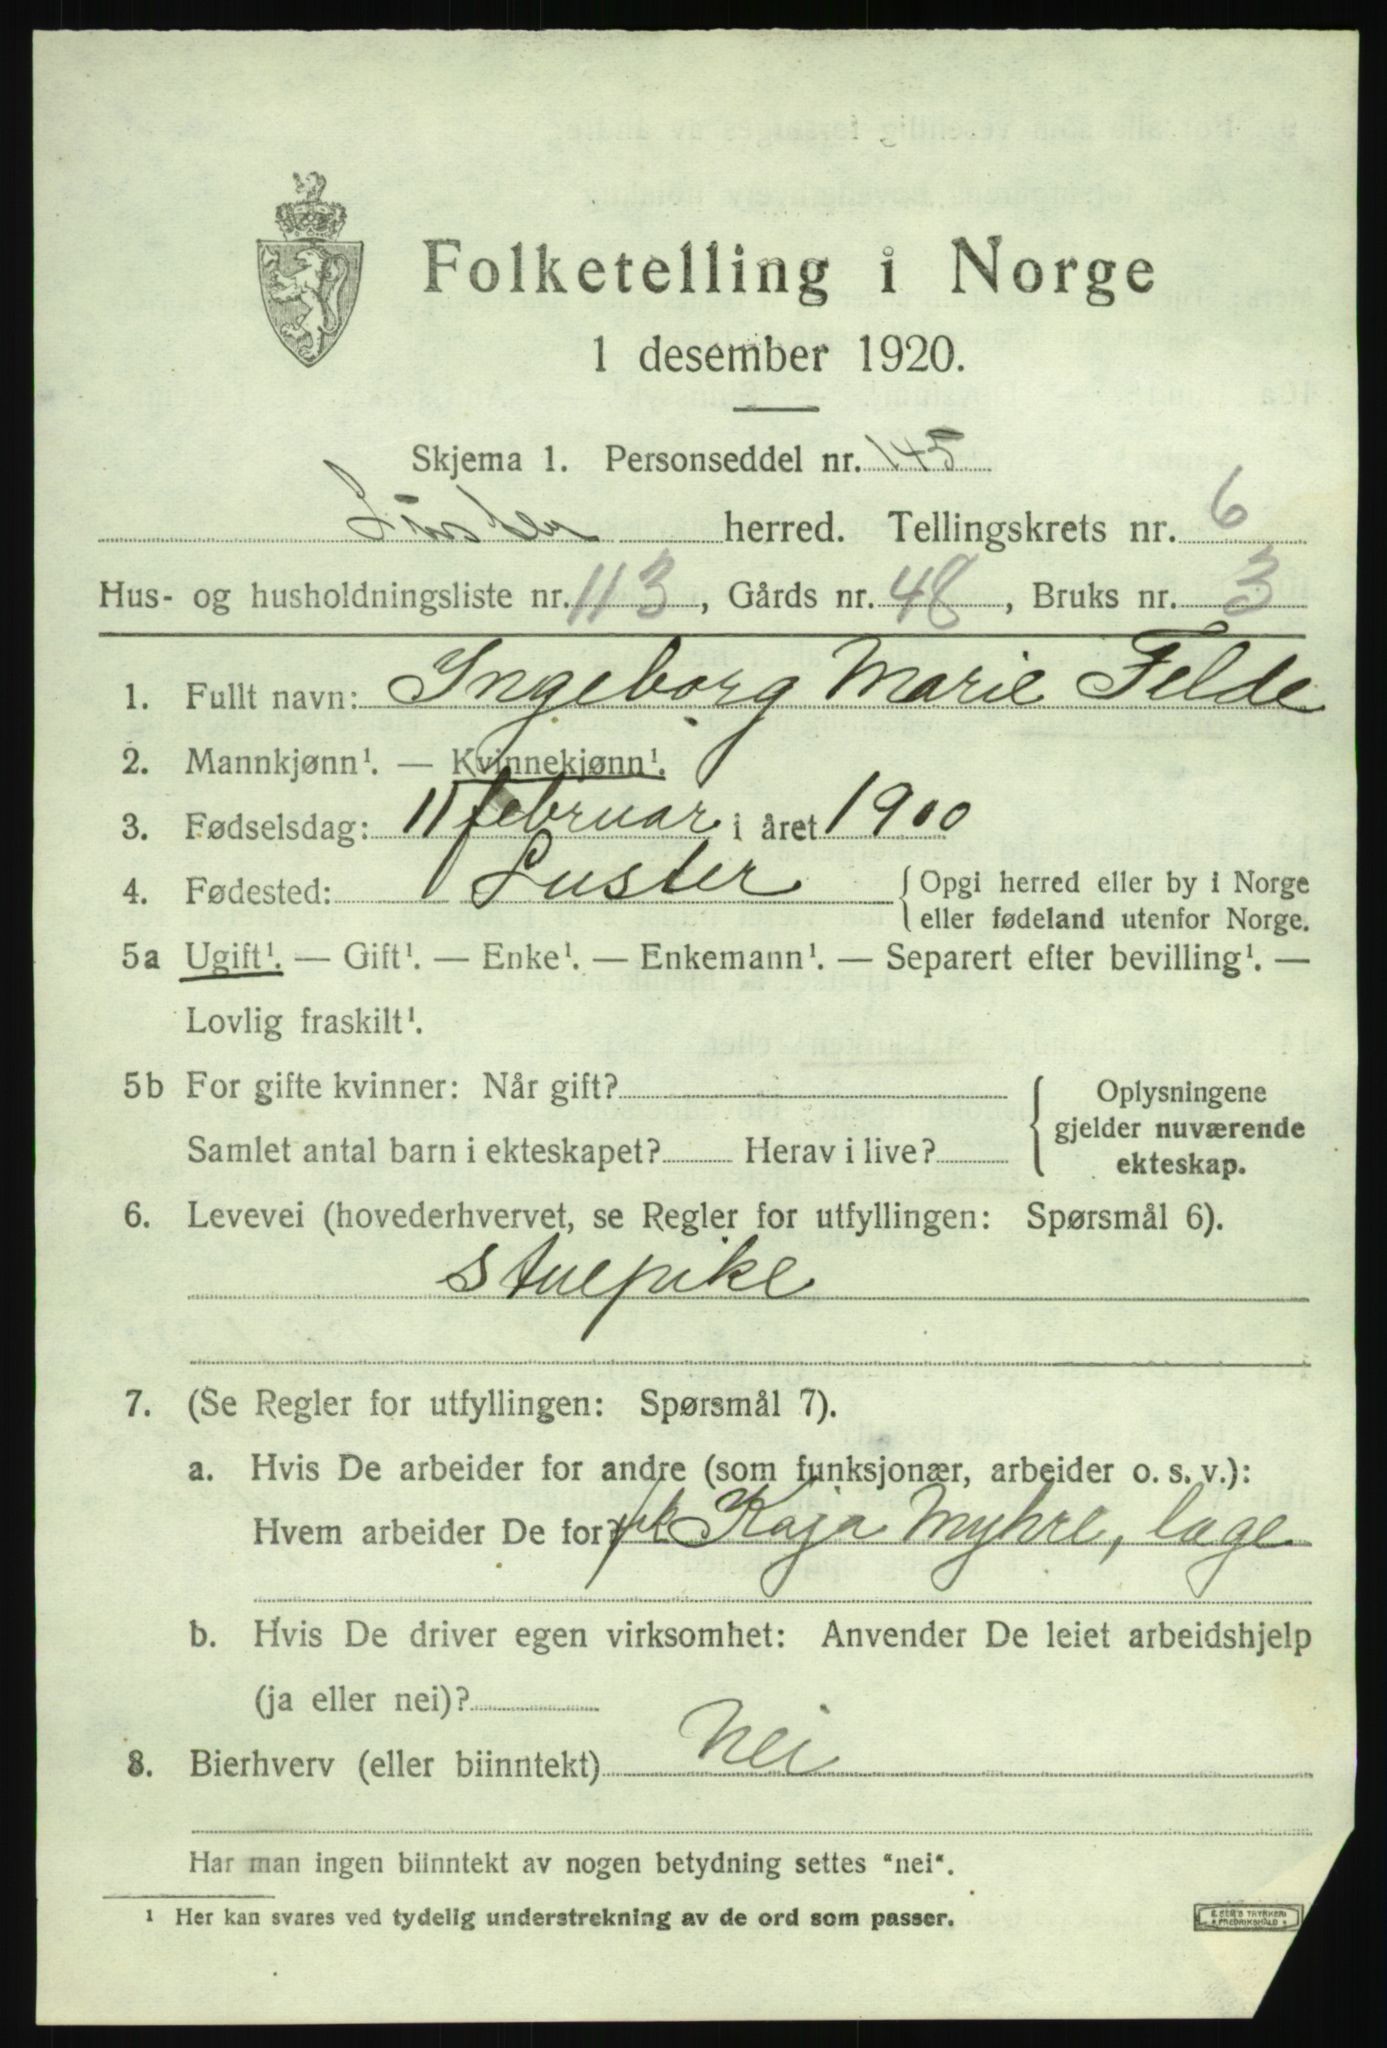 Folketelling i Norge
1 desember 1920.
Skjema 1. Personseddel nr. 145
Luster herred. Tellingskrets nr. 6
Hus- og husholdningsliste nr. 113, Gårds nr. 48, Bruks nr. 3
1. Fullt navn: Ingeborg Marie Felde
2. Mannkjønn¹. — Kvinnekjønn¹.
3. Fødselsdag: 11 februar i året 1900
4. Fødested: Luster {Opgi herred eller by i Norge
eller fødeland utenfor Norge.
5a Ugift¹. — Gift¹. — Enke¹. — Enkemann¹. — Separert efter bevilling¹. —
Lovlig fraskilt¹.
5b For gifte kvinner: Når gift? { Oplysningene
gjelder nuværende
Samlet antal barn i ekteskapet? Herav i live?
ekteskap.
6. Levevei (hovederhvervet, se Regler for utfyllingen: Spørsmål 6).
stuepike
7. (Se Regler for utfyllingen: Spørsmål 7).
a. Hvis De arbeider for andre (som funksjonær, arbeider o. s. v.):
Hvem arbeider De for? Kaja Myhre,
b. Hvis De driver egen virksomhet: Anvender De leiet arbeidshjelp
(ja eller nei)?
8. Bierhverv (eller biinntekt) Nei
Har man ingen biinntekt av nogen betydning settes "nei".
¹ Her kan svares ved tydelig understrekning av de ord som passer.